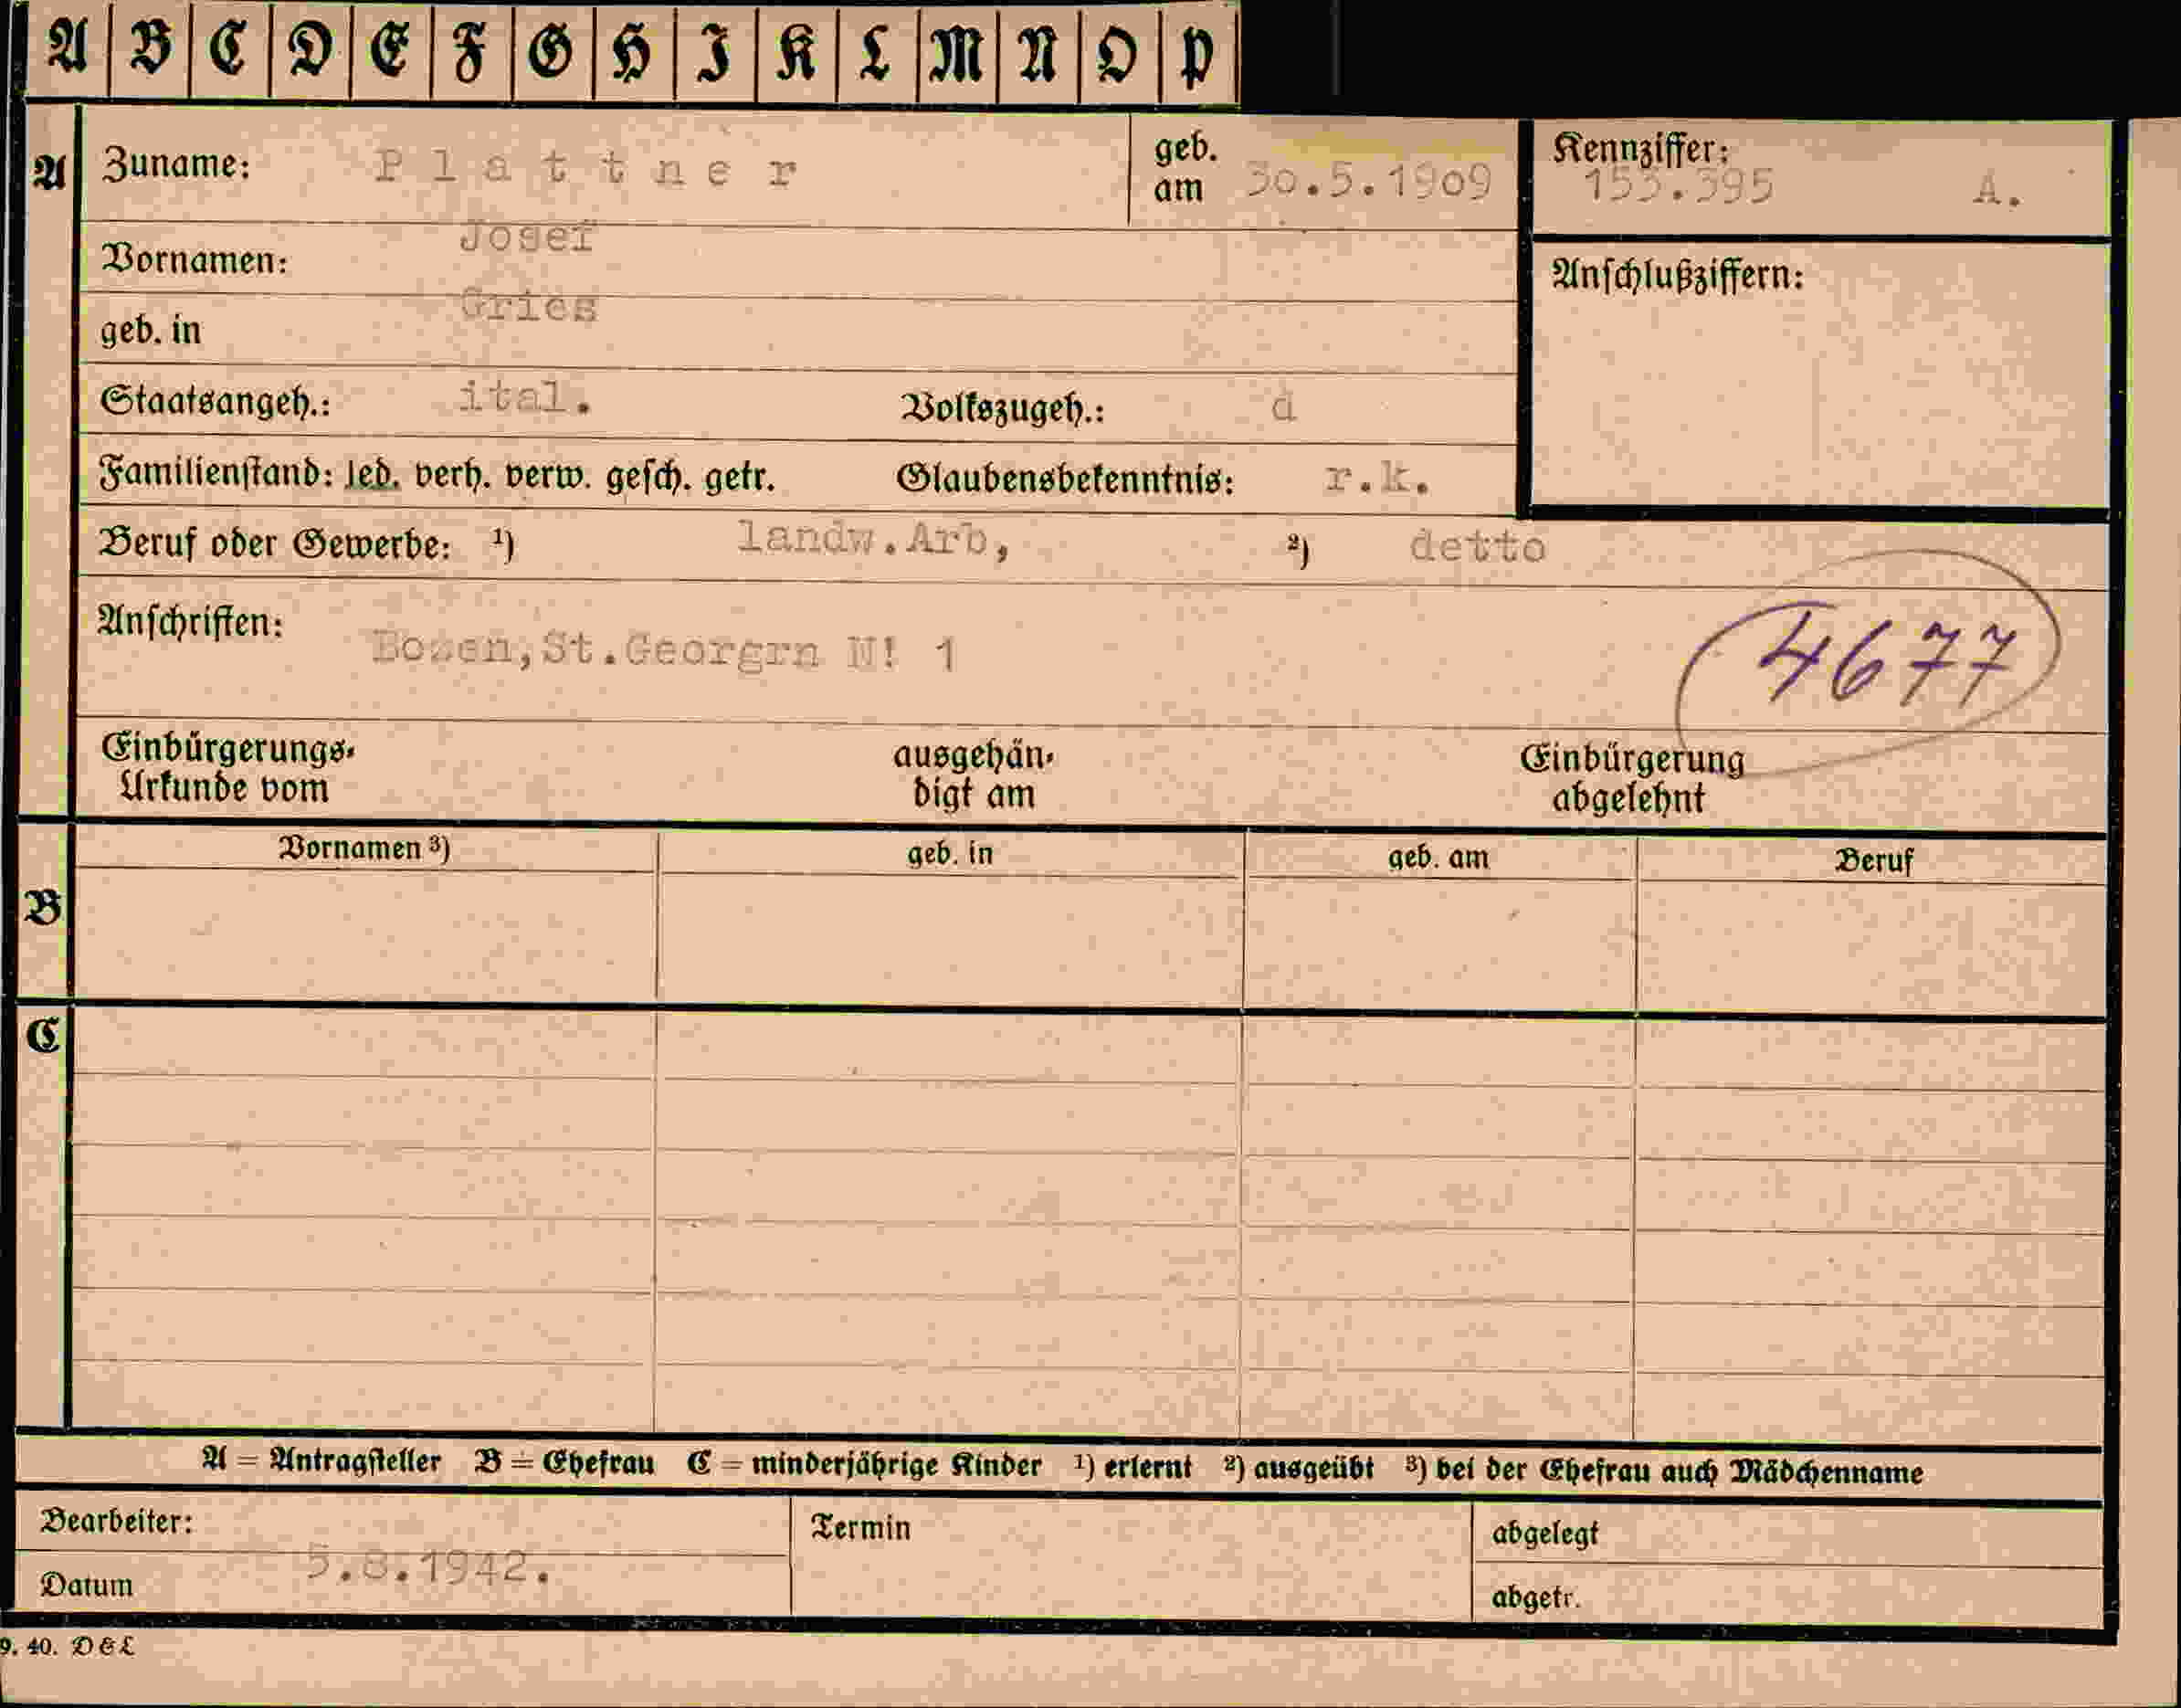 A B C D E F G H I K L M N O P
A Zuname: Plattner geb. am 30.5.1909 Kennziffer: 153.395 A.
Vornamen: Josef Anschlußziffern:
geb. in Gries
Staatsangeh.: ital. Volkszugeh.: d
Familienstand: led. verh. verw. gesch. getr. Glaubensbekenntnis: r.k.
Beruf oder Gewerbe: ¹) landw.Arb, ²) detto
Anschriften: Bozen,St.Georgrn N! 1 4677
Einbürgerungs- ausgehän- Einbürgerung
Urkunde vom digt am abgelehnt
Vornamen ³) geb. in geb. am Beruf
B
C
A = Antragsteller B = Ehefrau C = minderjährige Kinder ¹) erlernt ²) ausgeübt ³) bei der Ehefrau auch Mädchenname
Bearbeiter: Termin abgelegt
Datum 5.8.1942. abgetr.
9. 40. D&L